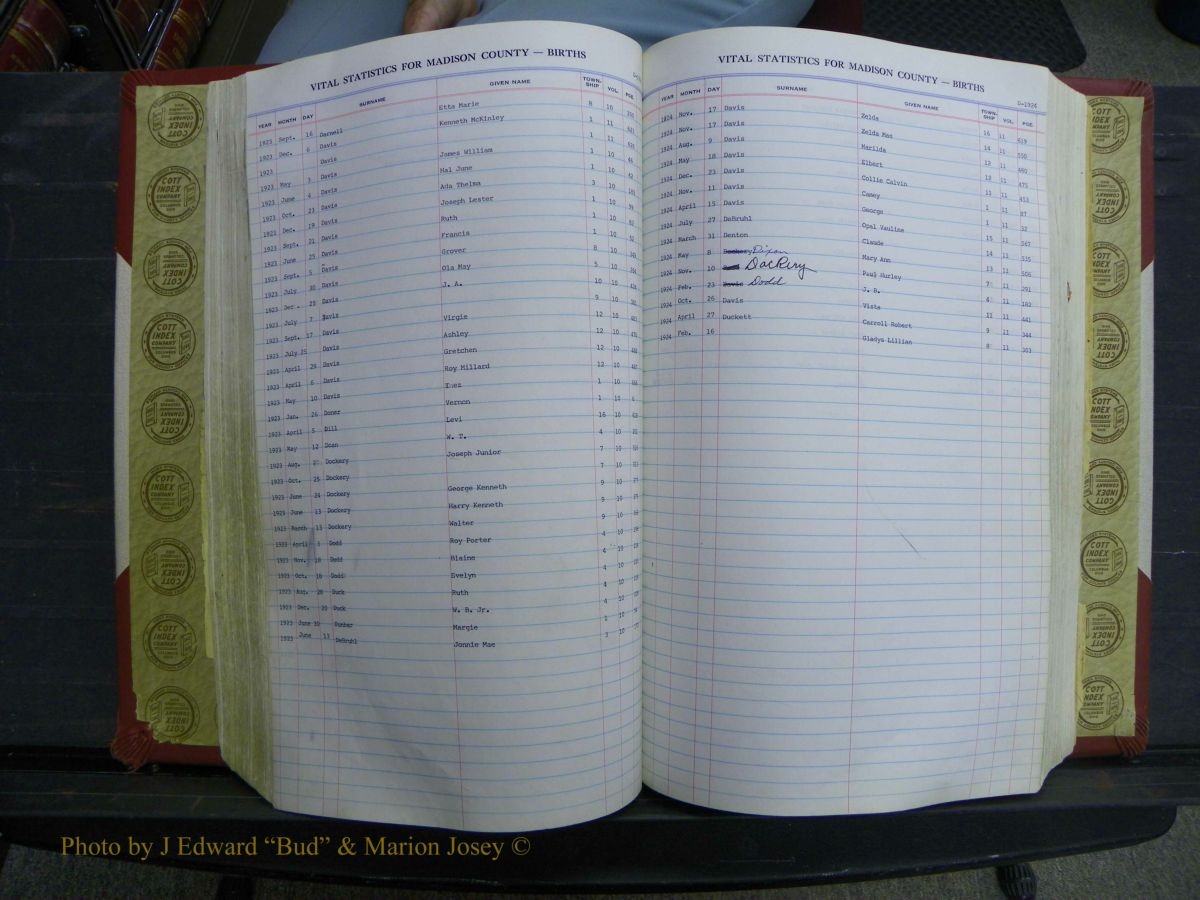 VITAL STATISTICS FOR MADISON COUNTY — BIRTHS
YEAR MONTH DAY SURNAME GIVEN NAME TOWN-SHIP VOL. PGE
1923 Sept. 16 Darnell Etta Marie 8 10
1923 Dec. 6 Davis Kenneth McKinley 1 11
1923 Davis 1 11
1923 May 3 Davis James William 1 10
1923 June 4 Davis Hal June 1 10
1923 Oct. 23 Davis Ada Thelma 3 10
1923 Dec. 19 Davis Joseph Lester 1 10
1923 Sept. 21 Davis Ruth 1 10
1923 June 25 Davis Francis 1 10
1923 Sept. 5 Davis Grover 8 10
1923 July 30 Davis Ola May 5 10
1923 Dec. 25 Davis J. A. 10 10
1923 July 7 Davis 9 10
1923 Sept. 17 Davis Virgie 12 10
1923 July 25 Davis Ashley 12 10
1923 April 29 Davis Gretchen 12 10
1923 April 6 Davis Roy Millard 12 10
1923 May 10 Davis Inez 1 10
1923 Jan. 26 Doner Vernon 1 10
1923 April 5 Dill Levi 16 10
1923 May 12 Doan W. T. 4 10
1923 Aug. Dockery Joseph Junior 7 10
1923 Oct. 25 Dockery 7 10
1923 June 24 Dockery George Kenneth 9 10
1923 June 13 Dockery Harry Kenneth 9 10
1923 March 13 Dockery Walter 9 10
1923 April 3 Dodd Roy Porter 4 10
1923 Nov. 18 Dodd Blaine 4 10
1923 Oct. 18 Dodd Evelyn 4 10
1923 Aug. 28 Duck Ruth 4 10
1923 Dec. 20 Duck W. B. Jr. 4 10
1923 June 30 Dunbar Margie 1 10
1923 June 13 DeBruhl Jonnie Mae 3 10
VITAL STATISTICS FOR MADISON COUNTY — BIRTHS
D-1924
YEAR MONTH DAY SURNAME GIVEN NAME TOWN-SHIP VOL. PGE
1924 Nov. 17 Davis Zelda 16 11 619
1924 Nov. 17 Davis Zelda Mae 14 11 550
1924 Aug. 9 Davis Marilda 12 11 480
1924 May 18 Davis Elbert 12 11 475
1924 Dec. 23 Davis Collie Calvin 11 11 453
1924 Nov. 11 Davis Camey 1 11 87
1924 April 15 Davis George 1 11 32
1924 July 27 DeBruhl Opal Vauline 15 11 567
1924 March 31 Denton Claude 14 11 535
1924 May 8 Dockery Dixon Mary Ann 13 11 506
1924 Nov. 10 Dockery Paul Hurley 7 11 291
1924 Feb. 23 Davis Dodd J. B. 4 11 182
1924 Oct. 26 Davis Viste 11 11 441
1924 April 27 Duckett Carroll Robert 9 11 344
1924 Feb. 16 Gladys Lillian 8 11 303
COTT INDEX COMPANY
Photo by J Edward “Bud” & Marion Josey ©